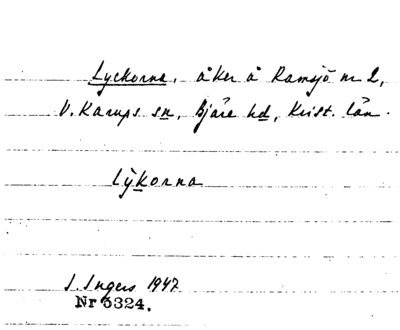 Lyckorna, åker å Ramsjö nr 2,
V. Karups sn, Bjäre hd, Krist. län.
lỳkorna
I. Ingers 1947
Nr 5324.